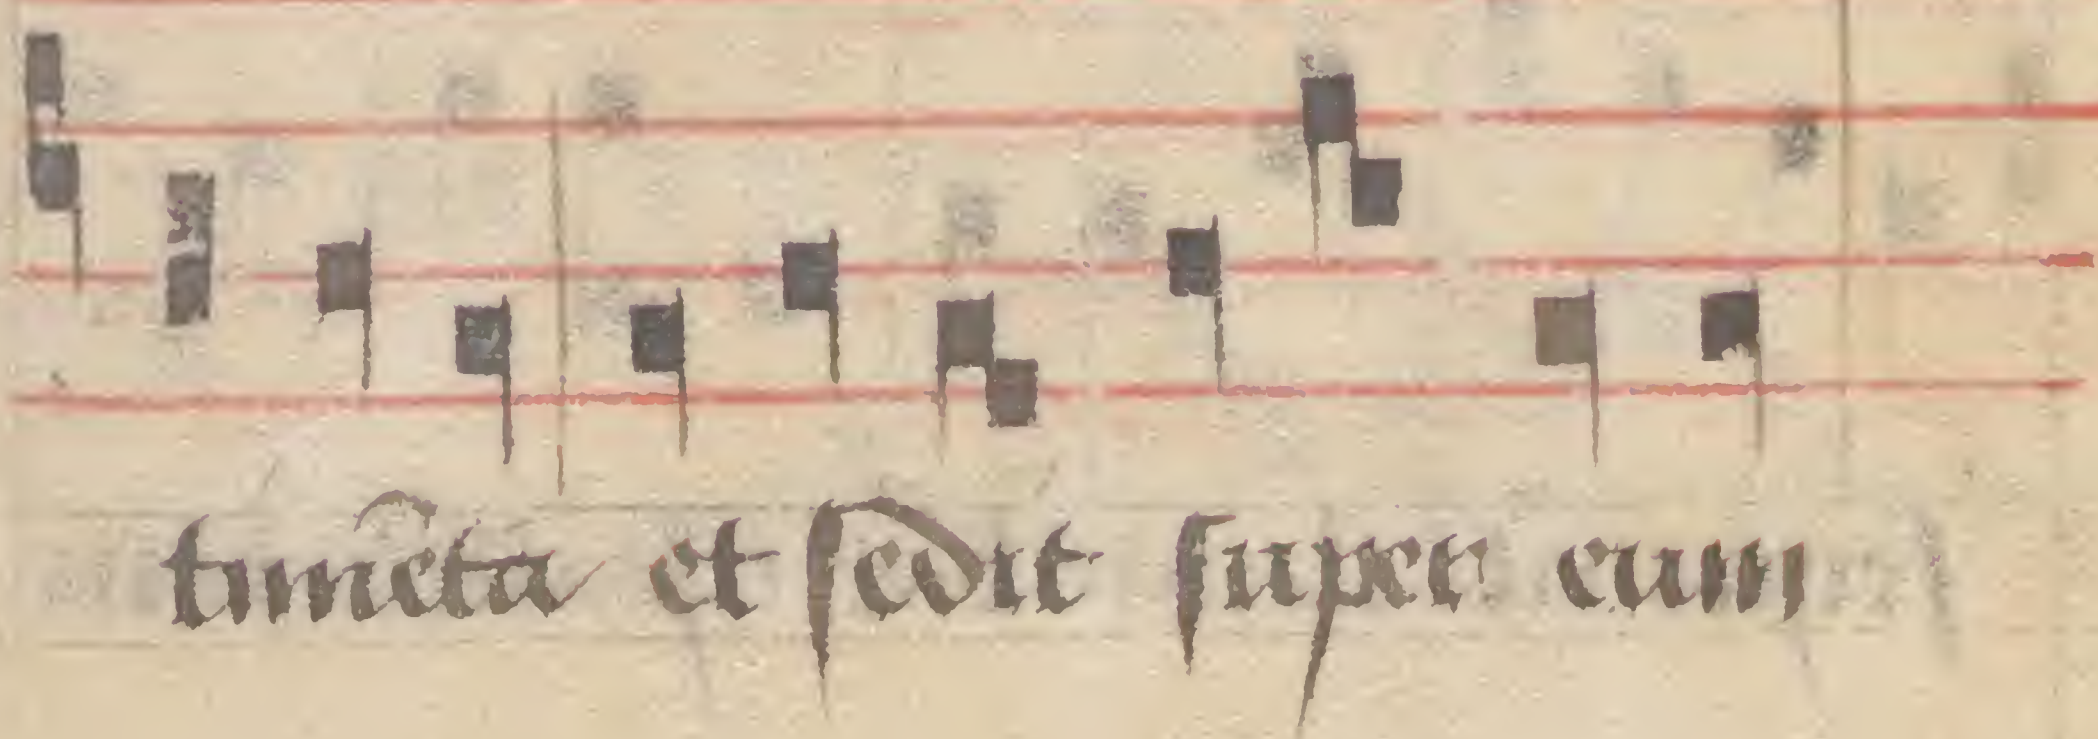 timēta et ſedit ſuper eum